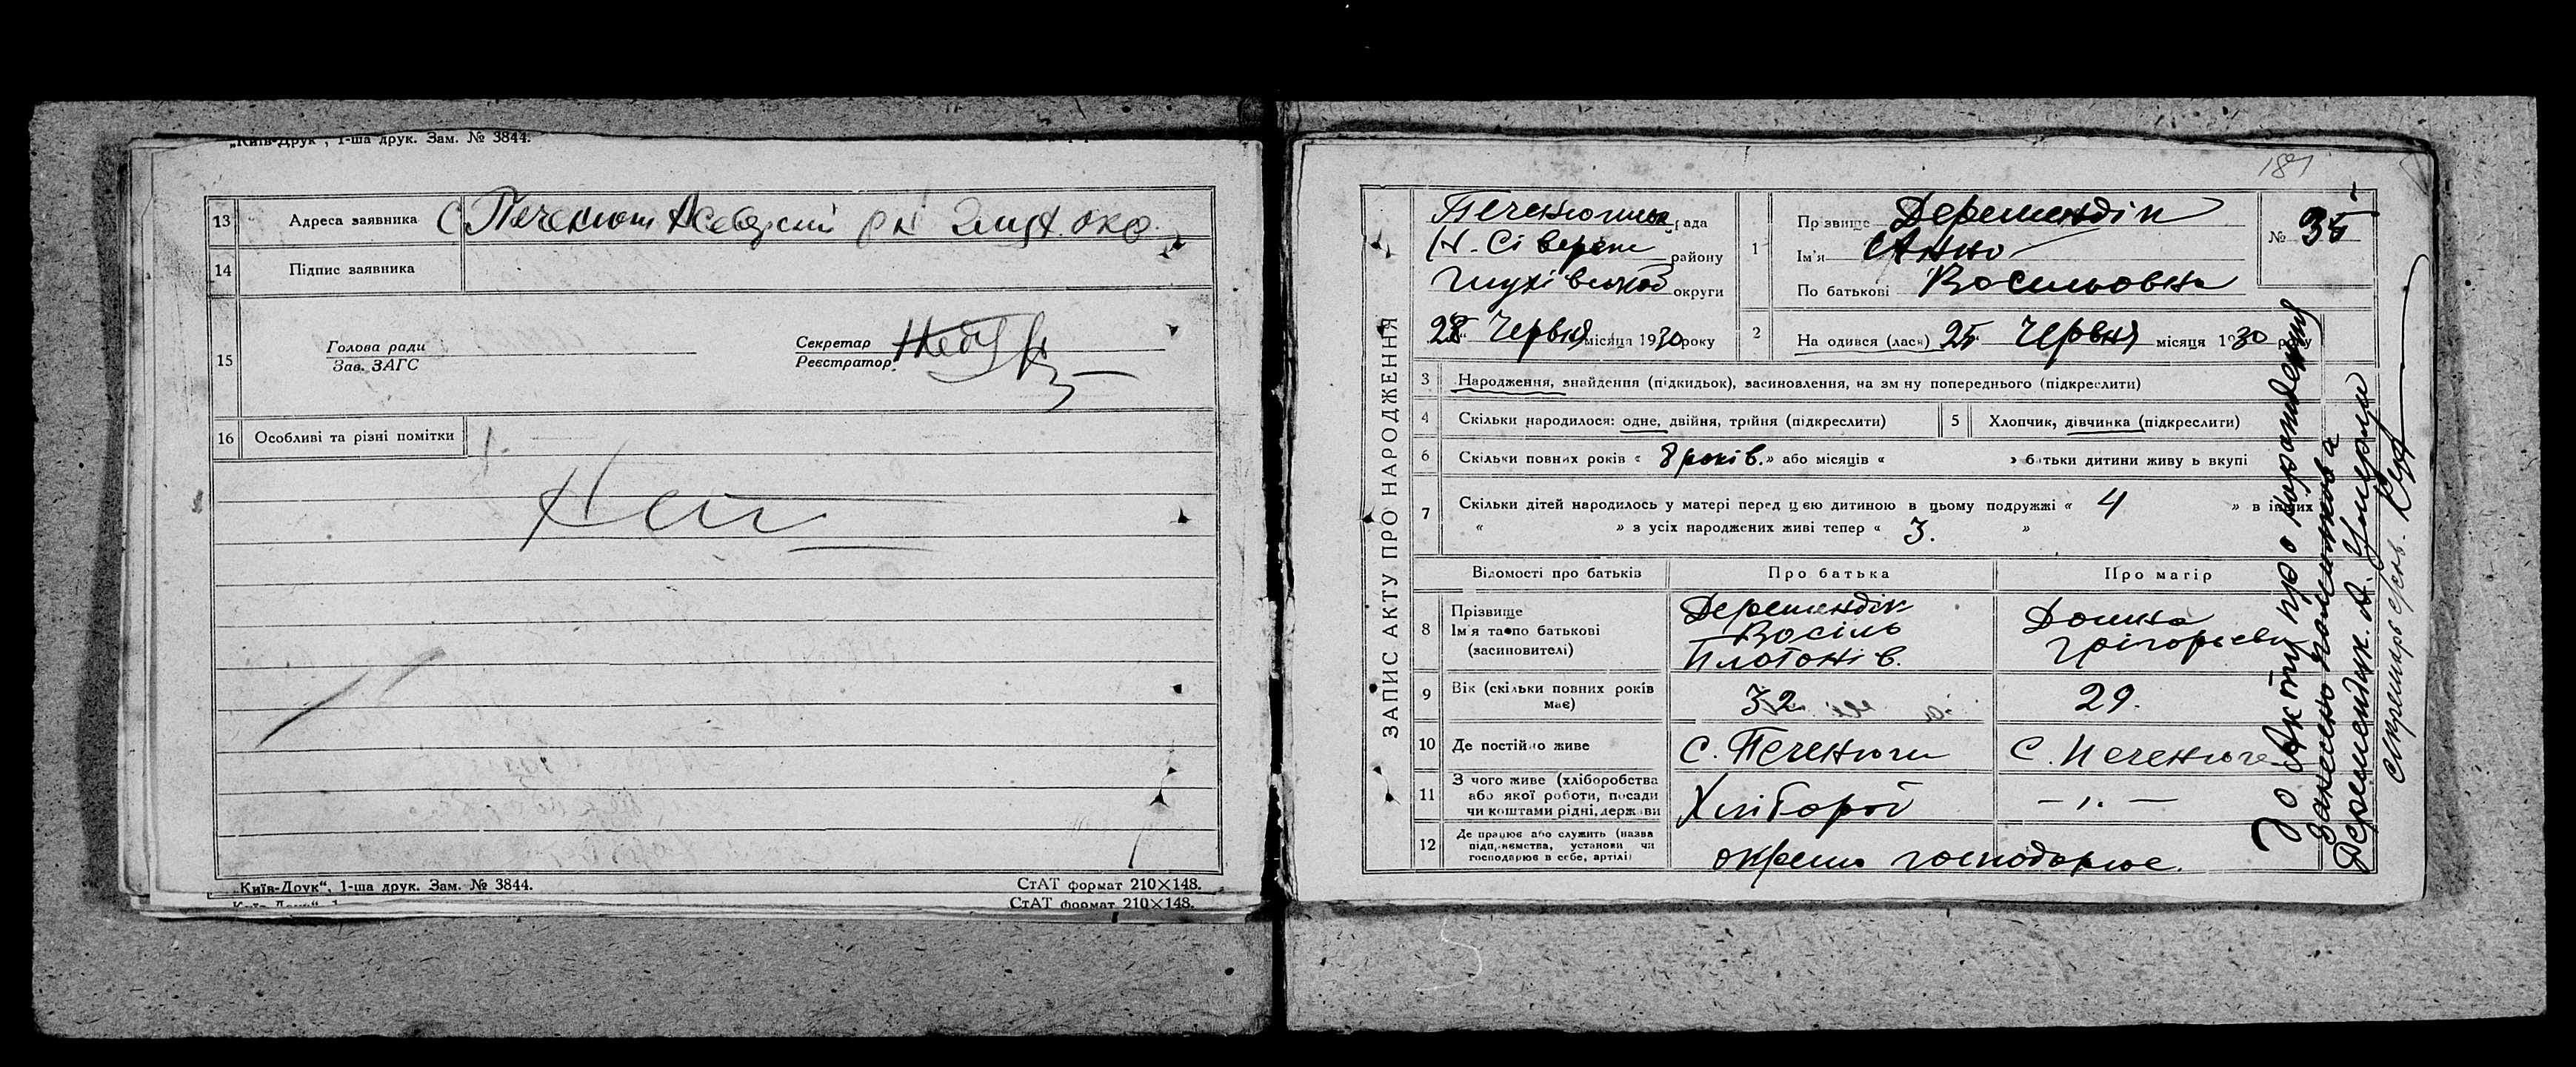 „Київ-Друк", 1-ша друк. Зам. № 3844.
13 Адреса заявника С. Печенюги
14 Підпис заявника
15 Голова ради
Зав. ЗАГС
Секретар
Реєстратор
16 Особливі та різні помітки
„Київ-Друк", 1-ша друк. Зам. № 3844. СтАТ формат 210×148.
СтАТ формат 210×148.
189
ЗАПИС АКТУ ПРО НАРОДЖЕННЯ
Печенюгинськ рада
Н-Сіверськ району
Глухівської округи
28 Червня місяця 1930 року
1 Прізвище Деремендік
Ім'я Анна
По батькові Васильовна
№ 35
2 Народився (лась) 25 Червня місяця 1930 року
3 Народження, знайдення (підкидьок), засиновлення, на зміну попереднього (підкреслити)
4 Скільки народилося: одне, двійня, трійня (підкреслити)
5 Хлопчик, дівчинка (підкреслити)
6 Скільки повних років « 8 років. » або місяців « » батьки дитини живуть вкупі
7 Скільки дітей народилось у матері перед цією дитиною в цьому подружжі « 4 » в інших
« » з усіх народжених живі тепер « 3. »
Відомості про батьків Про батька Про матір
8 Прізвище
Ім'я та по батькові
(засиновителі)
Деремендік
Васіль
Платонів.
Домна
Грігорьевн
9 Вік (скільки повних років має) 32 29.
10 Де постійно живе с. Печенюги с. Печенюги
11 З чого живе (хліборобства
або якої роботи, посади
чи коштами рідні, держави
Хлібороб
12 Де працює або служить (назва
підприємства, установи чи
господарює в себе, артілі)
окремо господарює.
До Акту про народження
занесено помилково а
Деремендик. А. Умерцю
Секретарь